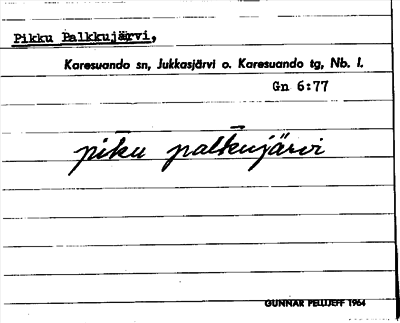 Pikku Palkkujärvi,
Karesuando sn, Jukkasjärvi o. Karesuando tg, Nb. l.
Gn 6:77
pīku pal̄kujärvi
GUNNAR PELLIJEFF 1964